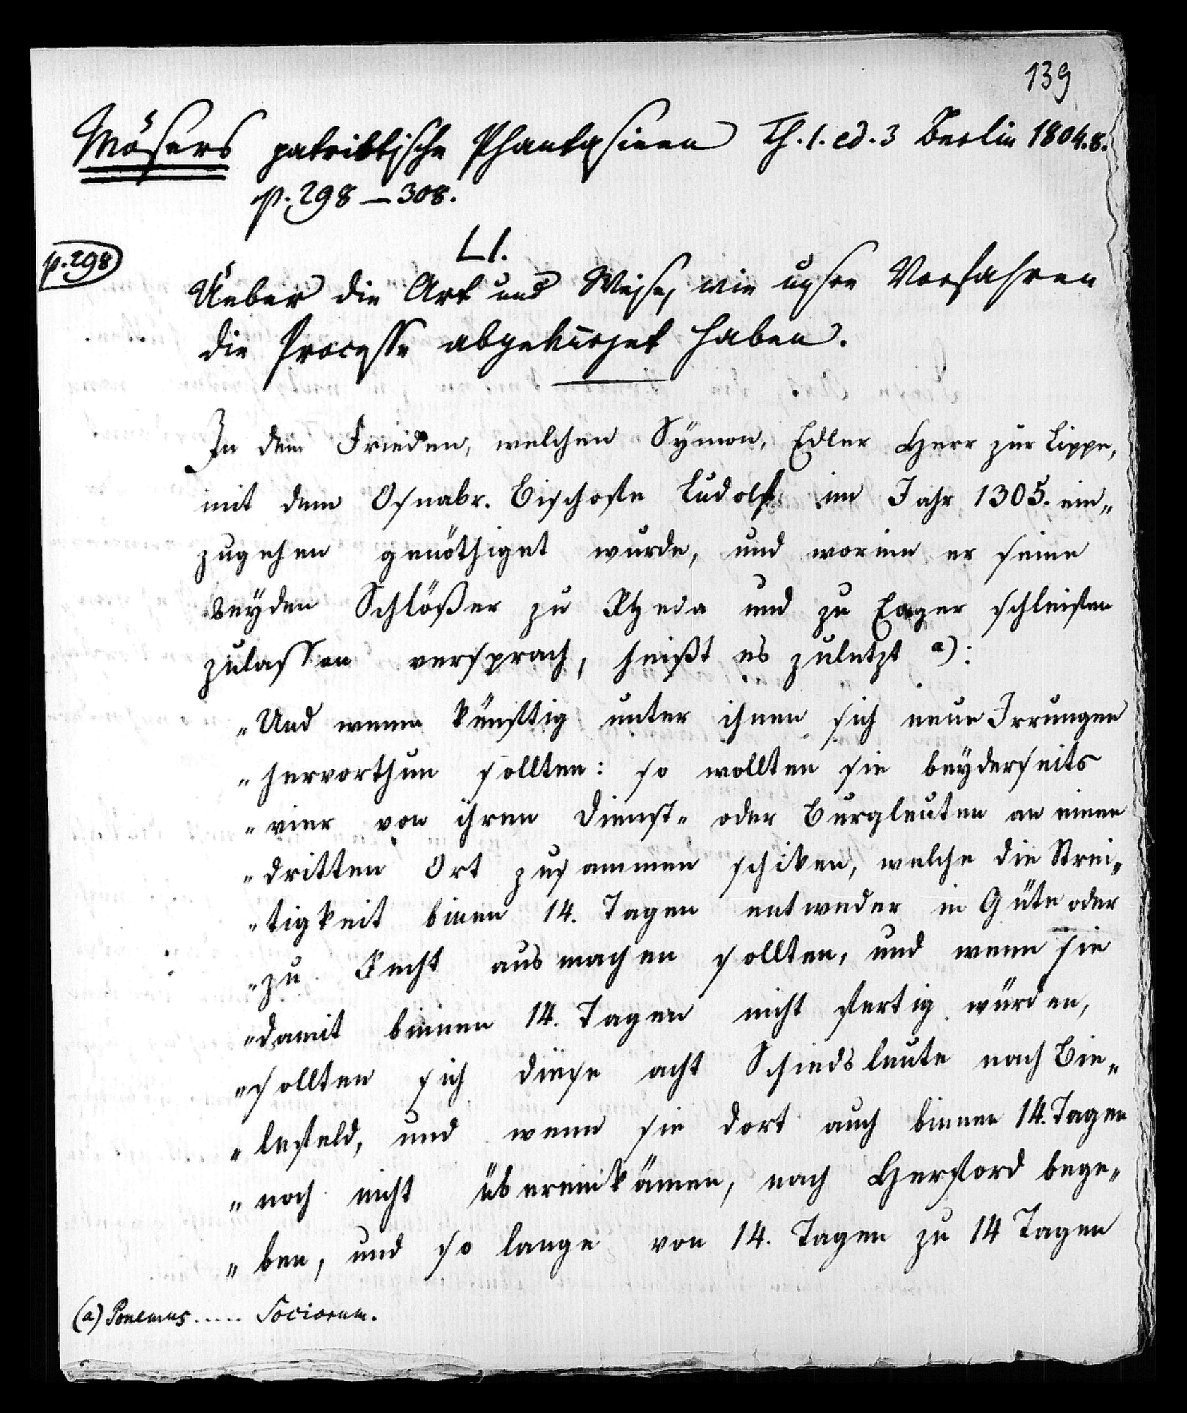 139
Mösers patriotische Phantasieen Th. 1. ed. 3 Berlin 1804. 8.
p. 298 — 308.
p. 298
LI.
Ueber die Art und Weise, wie unsre Vorfahren
die Processe abgekürzet haben.
In dem Frieden, welchen Symon, Edler Herr zur Lippe,
mit dem Osnabr. Bischofe Ludolf im Jahr 1305. ein„
zugehen genöthiget wurde, und worinn er seine
beyden Schlößer zu Rheda und zu Enger schleifen
zulassen versprach, heißt es zuletzt a):
„Und wenn künftig unter ihnen sich neue Irrungen
„hervorthun sollten: so wollten sie beyderseits
„vier von ihren Dienst- oder Burgleuten an einen
„dritten Ort zusammen schiken, welche die Strei„
„tigkeit binen 14. Tagen entweder in Güte oder
„zu Recht ausmachen sollten, und wenn sie
„damit binnen 14. Tagen nicht fertig würden,
„sollten sich diese acht Schiedsleute nach Bie„
„lefeld, und wenn sie dort auch binnen 14. Tagen
„noch nicht übereinkämen, nach Herford bege„
„ben, und so lange von 14. Tagen zu 14 Tagen
(a) Ponemus ..... Sociorum.